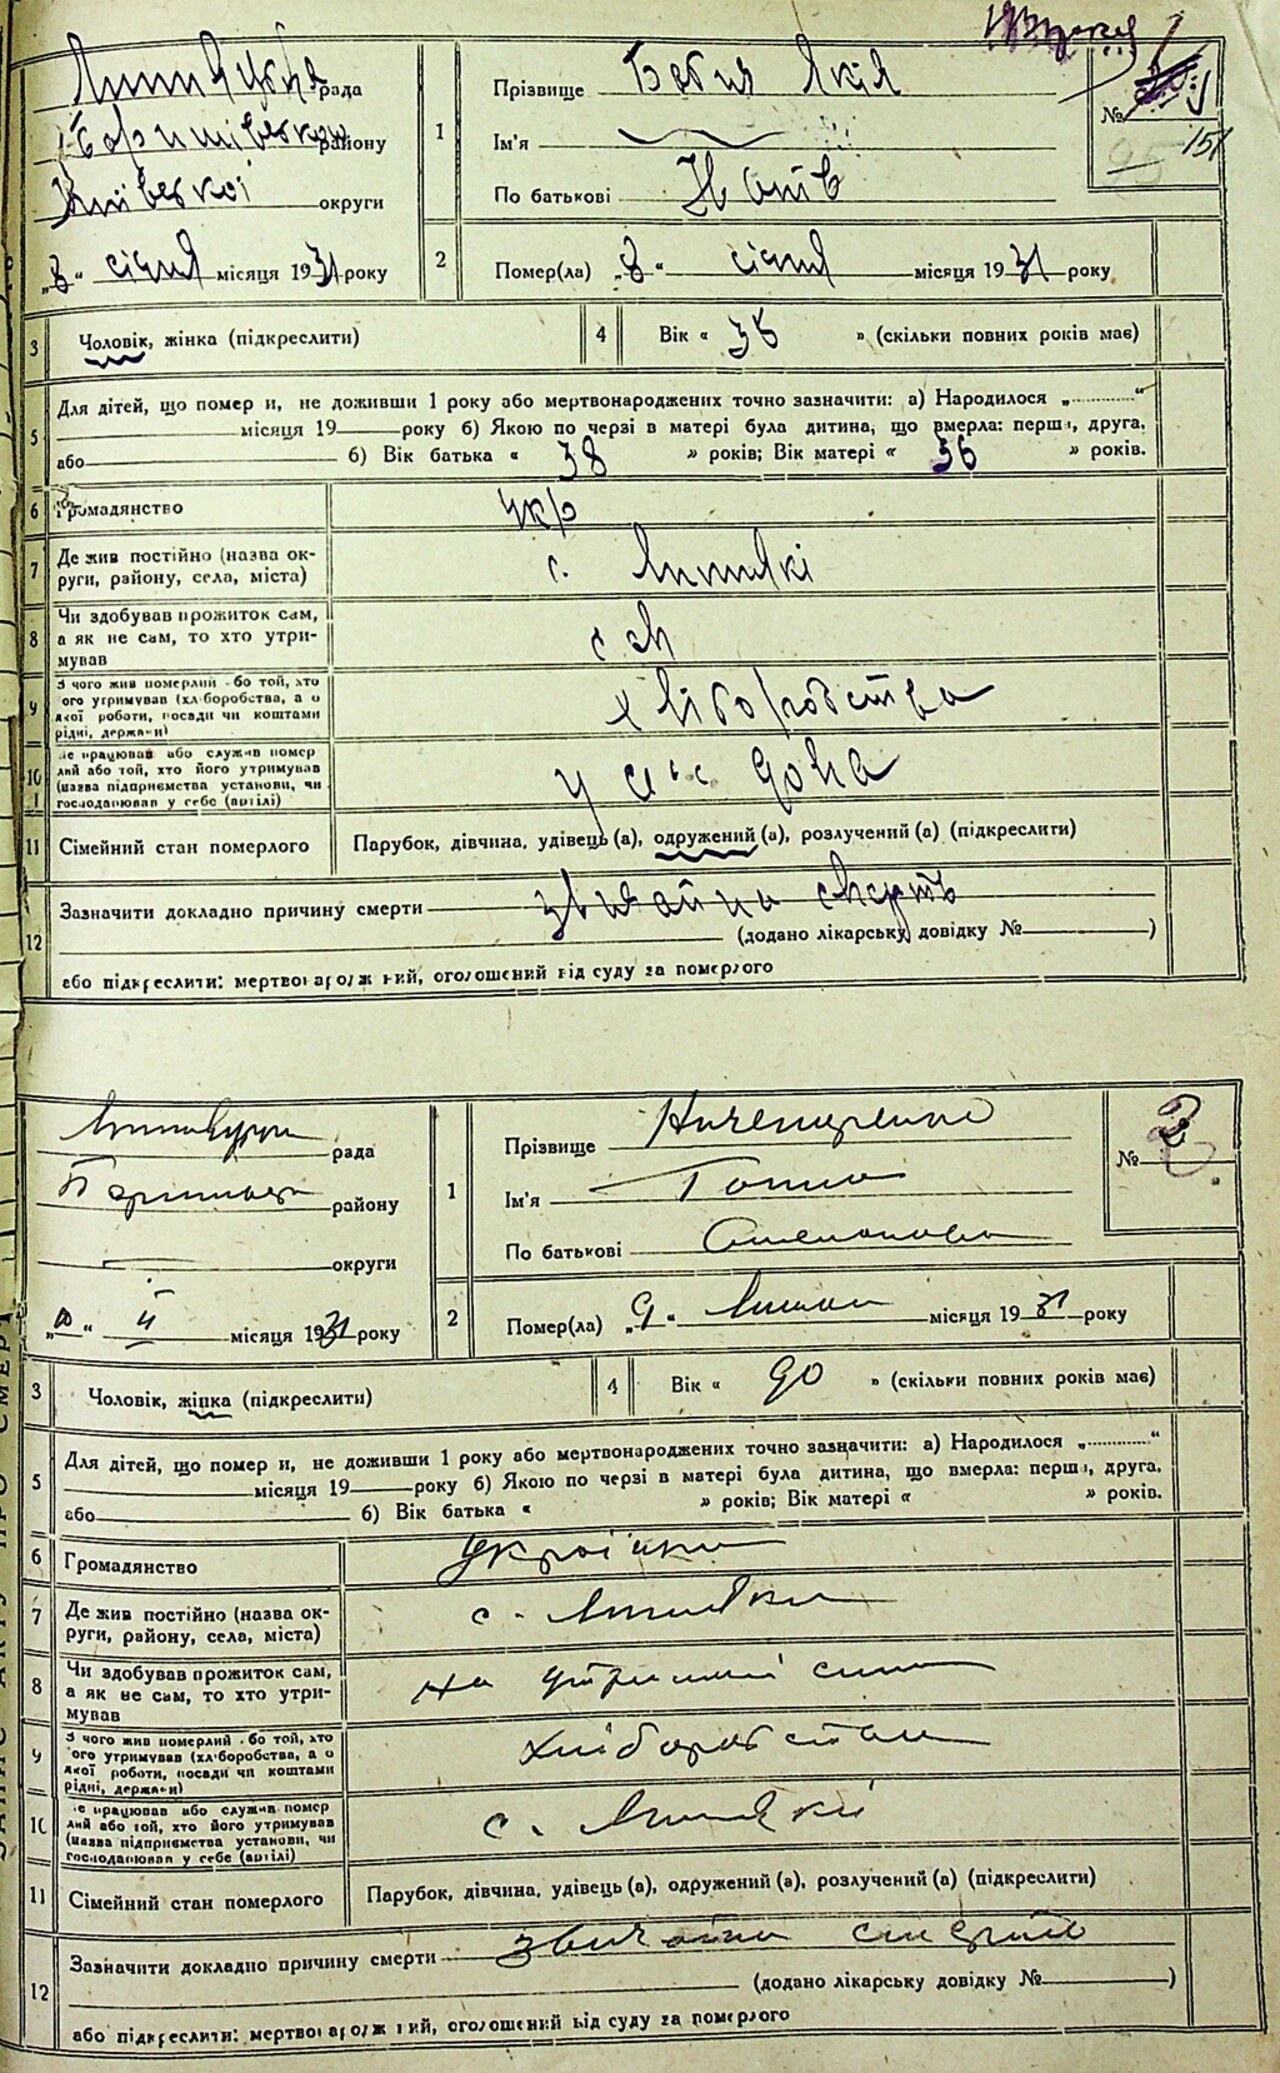 рада
району
Київської округи
"8" січня місяця 1931 року
1
Прізвище
Ім'я
По батькові
№ 151
95
2
Помер(ла) "8" січня місяця 1931 року
3
Чоловік, жінка (підкреслити)
4
Вік « 38 » (скільки повних років має)
5
Для дітей, що помер и, не доживши 1 року або мертвонароджених точно зазначити: а) Народилося „
місяця 19 року б) Якою по черзі в матері була дитина, що вмерла: перш, друга,
або б) Вік батька « 38 » років; Вік матері « 36 » років.
6
Громадянство укр
7
Де жив постійно (назва ок-
руги, району, села, міста)
с. Липнякі
8
Чи здобував прожиток сам,
а як не сам, то хто утри-
мував
сам
9
З чого жив померлий або той, хто
ого утримував (хл боробства, а о
якої роботи, посади чи коштами
рідні, держави)
хліборобства
10
е працював або служив помер
лий або той, хто його утримував
(назва підприємства установи, чи
господарював у себе (артілі)
у себе дома
11
Сімейний стан померлого
Парубок, дівчина, удівець (а), одружений (а), розлучений (а) (підкреслити)
12
Зазначити докладно причину смерти звичайна смерть
(додано лікарську довідку № )
або підкреслити: мертвонароджений, оголошений від суду за померлого
рада
району
округи
II місяця 1931 року
1
Прізвище
Ім'я
По батькові Степановна
№ 2
2
Помер(ла) „9" місяця 1931 року
3
Чоловік, жінка (підкреслити)
4
Вік « 90 » (скільки повних років має)
5
Для дітей, що помер и, не доживши 1 року або мертвонароджених точно зазначити: а) Народилося „ “
місяця 19 року б) Якою по черзі в матері була дитина, що вмерла: перш, друга,
або б) Вік батька « » років; Вік матері « » років.
6
Громадянство українка
7
Де жив постійно (назва ок-
руги, району, села, міста)
с. Липняки
8
Чи здобував прожиток сам,
а як не сам, то хто утри-
мував
на утриманні сина
9
З чого жив померлий або той, хто
ого утримував (хл боробства, а о
якої роботи, посади чи коштами
рідні, держави)
хліборобством
10
е працював або служив помер
лий або той, хто його утримував
(назва підприємства установи, чи
господарював у себе (артілі)
с. Липнякі
11
Сімейний стан померлого
Парубок, дівчина, удівець (а), одружений (а), розлучений (а) (підкреслити)
12
Зазначити докладно причину смерти звичайна смерть
(додано лікарську довідку № )
або підкреслити: мертвонароджений, оголошений від суду за померлого